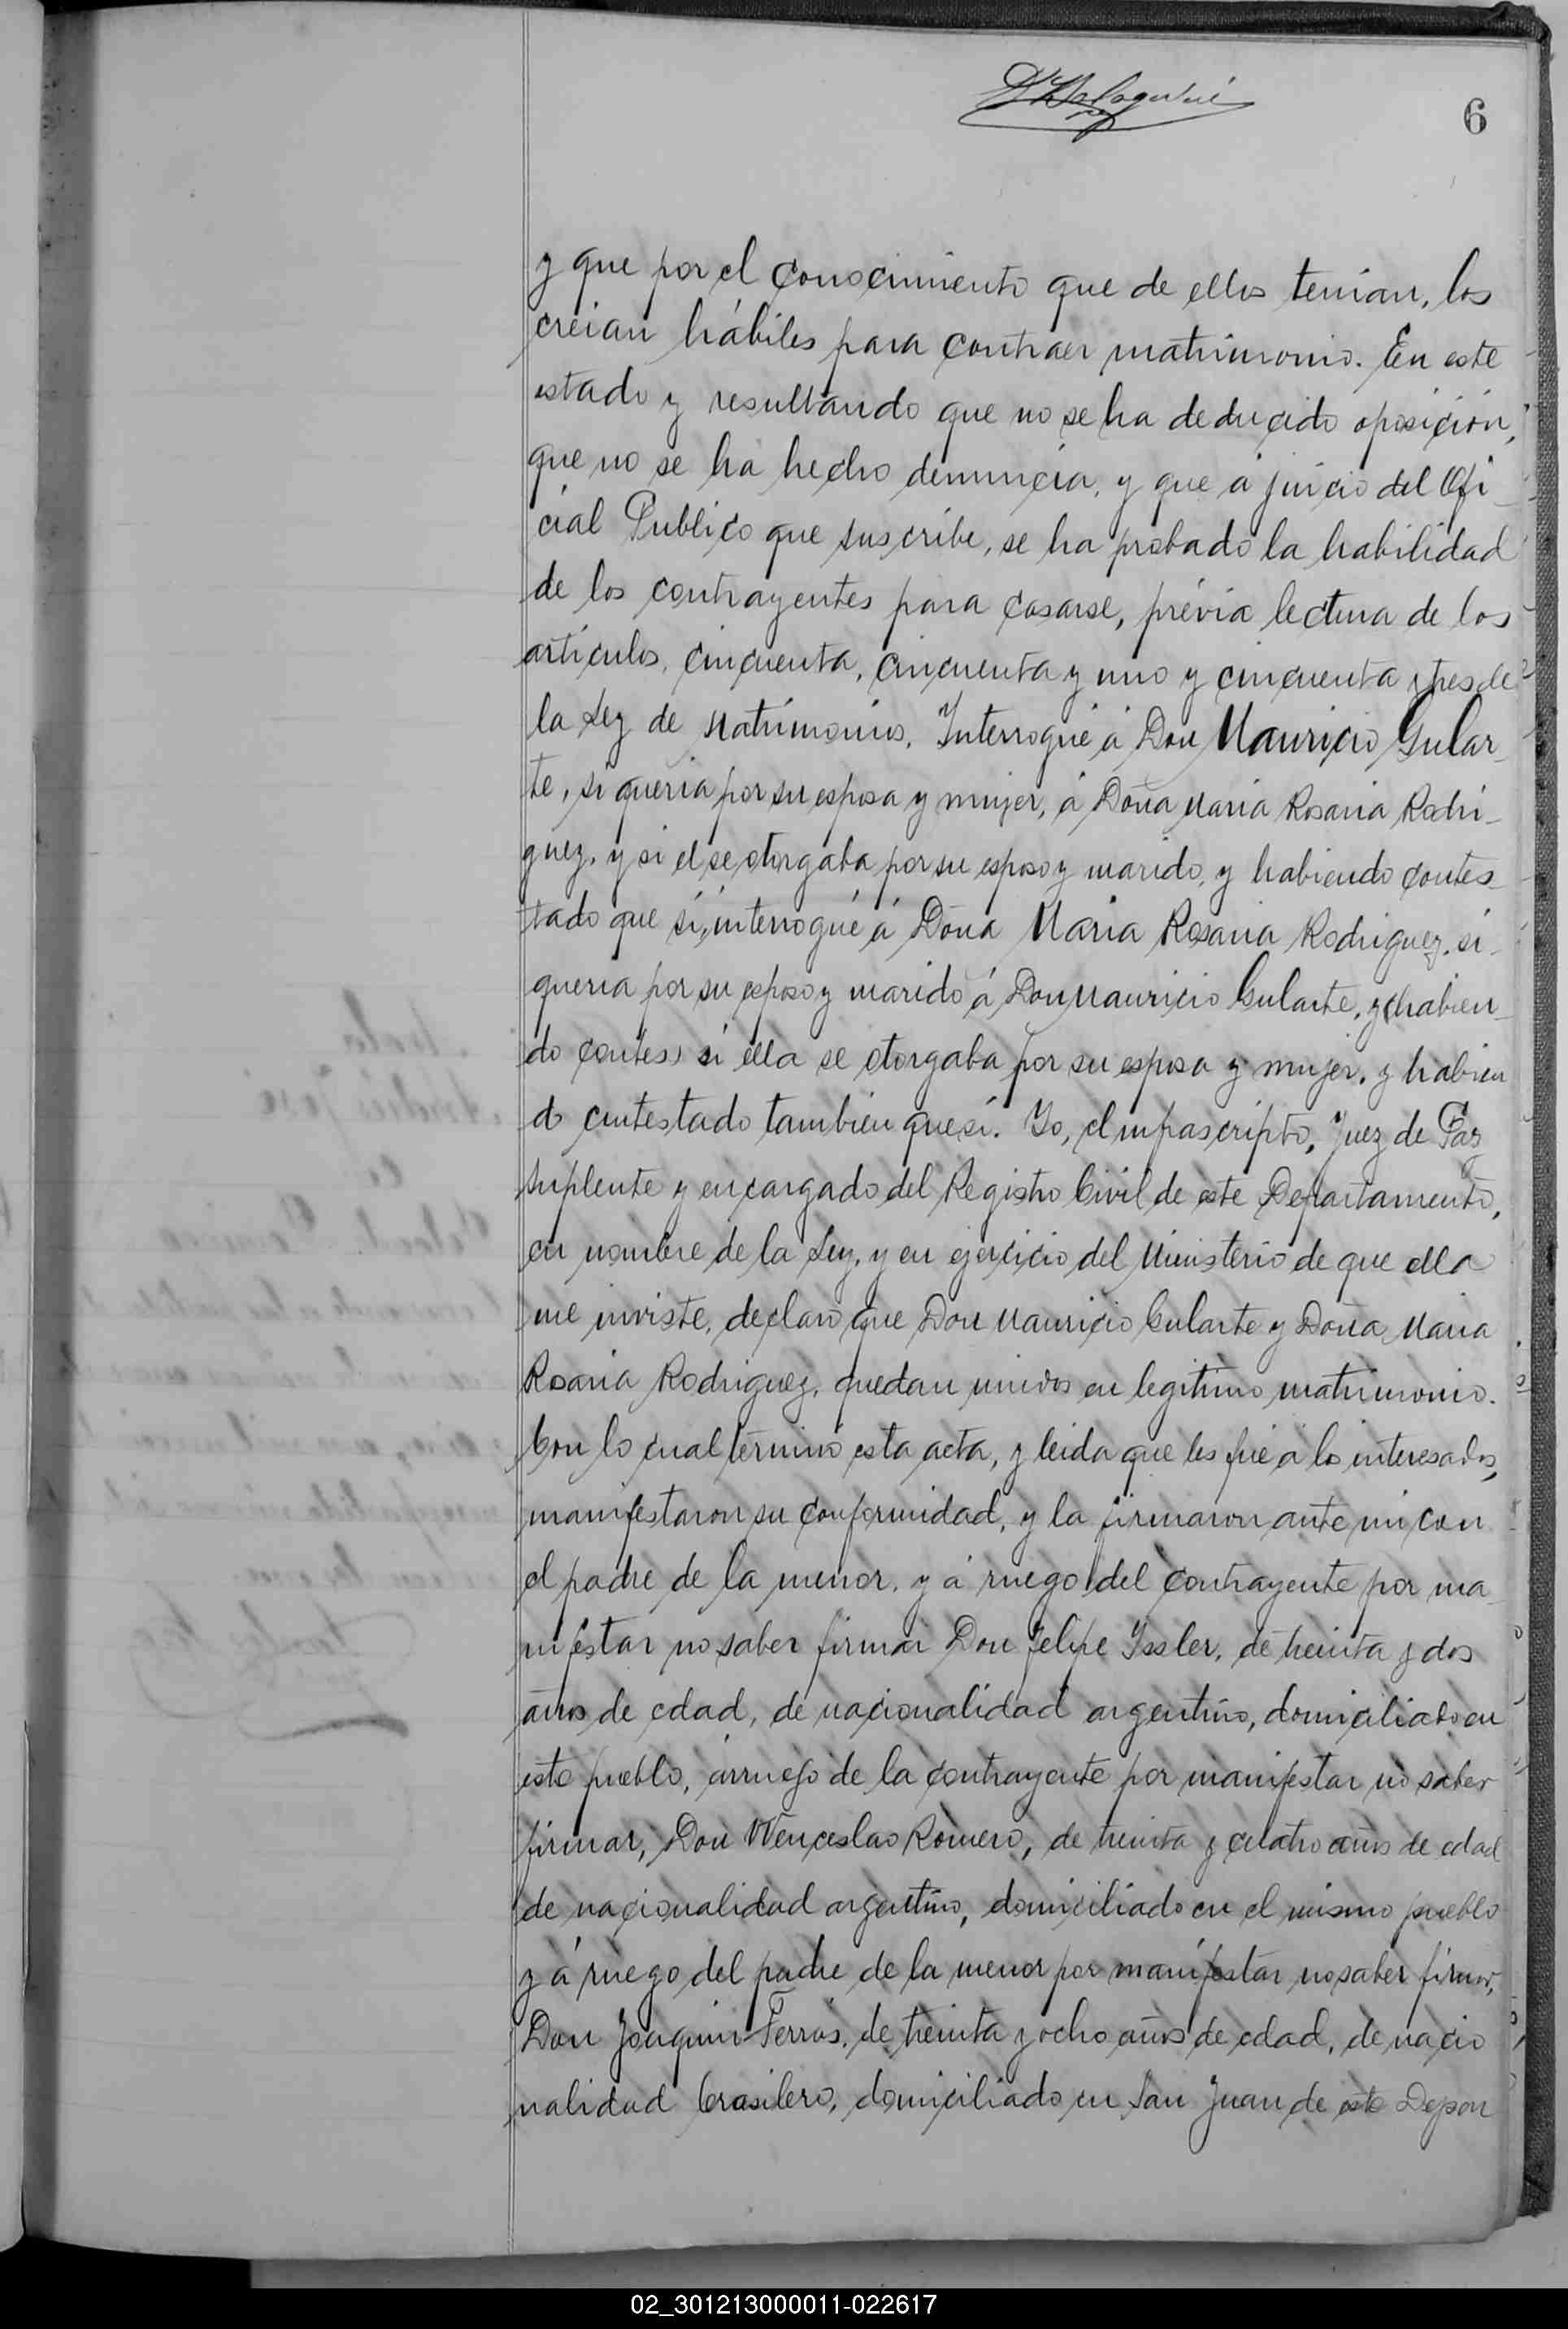 6
y que por el conocimiento que de ellos tenian, los
creian hábiles para contraer matrimonio. En este
estado y resultando que no se ha deducido oposición,
que no se ha hecho denuncia, y que á juicio del Ofi-
cial Publico que suscribe, se ha probado la habilidad
de los contrayentes para casarse, prévia lectura de los
artículos, cincuenta, cincuenta y uno y cincuenta y tres de
la Ley de Matrimonios, Interrogué á Don Mauricio Gular-
te, si queria por su esposa y mujer, á Doña Maria Rosaria Rodri-
guez, y si el se otorgaba por su esposo y marido, y habiendo contes-
tado que sí, interrogué á Doña Maria Rosaria Rodriguez, si
queria por su esposo y marido á Don Mauricio Gularte, y (habien-
do contes) si ella se otorgaba por su esposa y mujer, y habien
do contestado tambien que sí. Yo, el infrascripto, Juez de Paz
suplente y encargado del Registro Civil de este Departamento,
en nombre de la Ley, y en ejercicio del Ministerio de que ella
me inviste, declaro que Don Mauricio Gularte y Doña Maria
Rosaria Rodriguez, quedan unidos en legitimo matrimonio.
Con lo cual terminó esta acta, y leida que les fué a los interesados,
manifestaron su conformidad, y la firmaron ante mi con
el padre de la menor, y á ruego del contrayente por ma-
nifestar no saber firmar Don Felipe Yssler, de treinta y dos
años de edad, de nacionalidad argentino, domiciliado en
este pueblo, árruego de la contrayente por manifestar no saber
firmar, Don Wenceslao Romero, de treinta y cuatro años de edad
de nacionalidad argentino, domiciliado en el mismo pueblo
y á ruego del padre de la menor por manifestar no saber firmar,
Don Joaquin Ferras, de treinta y ocho años de edad, de nacio
nalidad brasilero, domiciliado en San Juan de este Depar
02_301213000011-022617